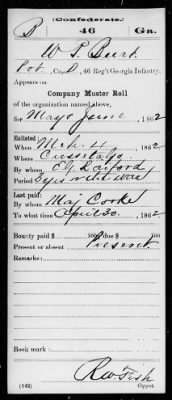 (Confederate.)
B 46 Ga.
W. P. Burt
Pvt., Co. D, 46 Reg't Georgia Infantry.
Appears on
Company Muster Roll
of the organization named above,
for May & June, 1862
Enlisted:
When Mch 4, 1862
Where Cusseta Ga.
By whom
Period 3 yrs or the war
Last paid:
By whom Maj Cooke
To what time April 30, 1862
Bounty paid $ 100; due $ 100
Present or absent Present
Remarks:
Book mark:
R W Fish
(642) Copyist.